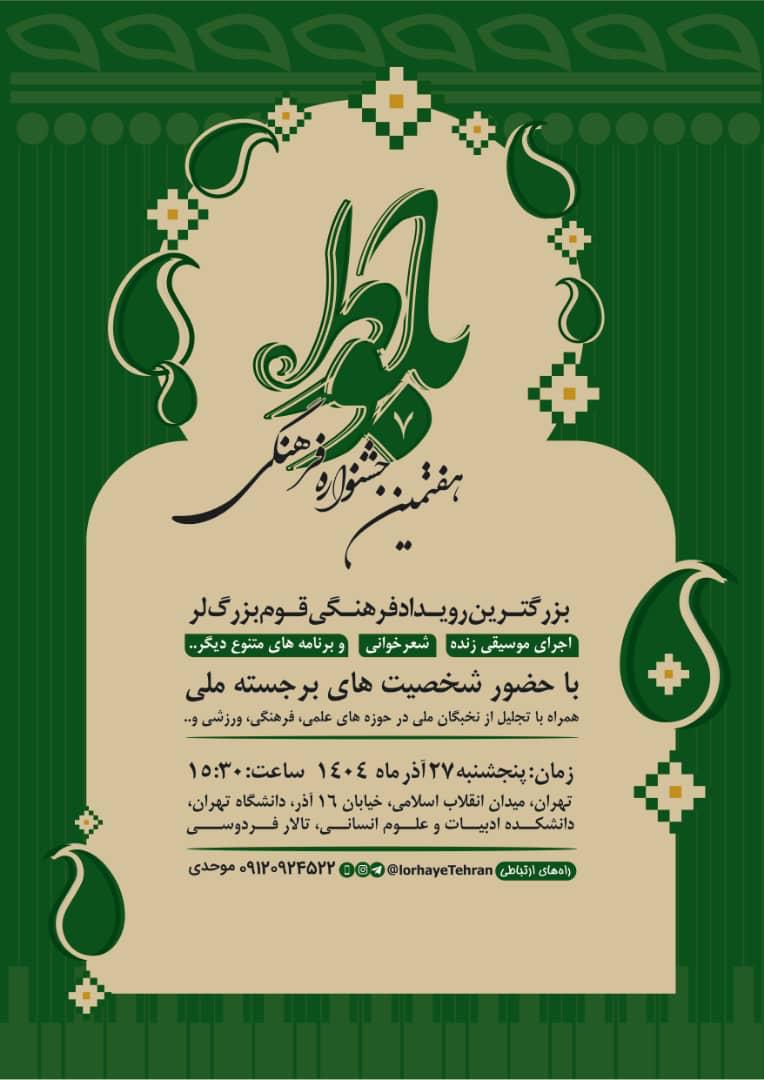 ۷
هفتمین جشنواره فرهنگی
بزرگترین رویداد فرهنگی قوم بزرگ لر
اجرای موسیقی زنده شعرخوانی و برنامه های متنوع دیگر..
با حضور شخصیت های برجسته ملی
همراه با تجلیل از نخبگان ملی در حوزه های علمی، فرهنگی، ورزشی و..
زمان: پنجشنبه ۲۷ آذر ماه ۱۴۰۴ ساعت: ۱۵:۳۰
تهران، میدان انقلاب اسلامی، خیابان ۱۶ آذر، دانشگاه تهران،
دانشکده ادبیات و علوم انسانی، تالار فردوسی
راه‌های ارتباطی @lorhayeTehran ۰۹۱۲۰۹۲۴۵۲۲ موحدی